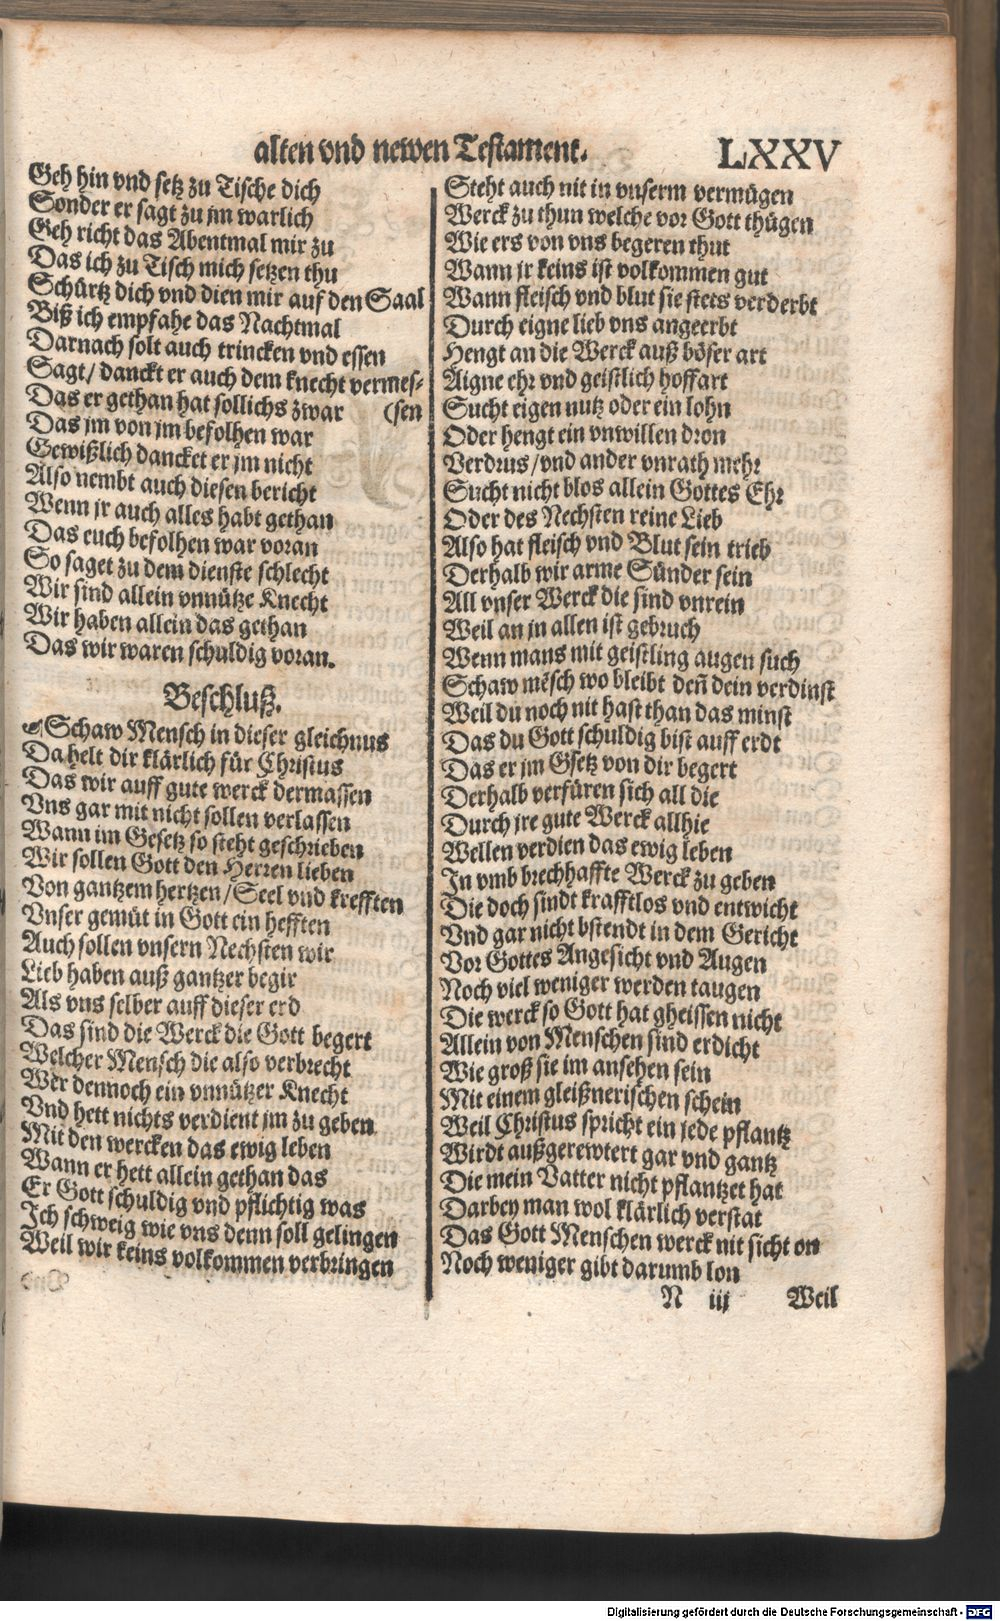 alten vnd newen Testament. LXXV
Geh hin vnd setz zu Tische dich
Sonder er sagt zu jm warlich
Geh richt das Abentmal mir zu
Das ich zu Tisch mich setzen thu
Schürtz dich vnd dien mir auf den Saal
Biß ich empfahe das Nachtmal
Darnach solt auch trincken vnd essen
Sagt/ danckt er auch dem knecht vermes-
Das er gethan hat sollichs zwar (sen
Das jm von jm befolhen war
Gewißlich dancket er jm nicht
Also nembt auch diesen bericht
Wenn jr auch alles habt gethan
Das euch befolhen war voran
So saget zu dem dienste schlecht
Wir sind allein vnnütze Knecht
Wir haben allein das gethan
Das wir waren schuldig voran.
Beschluß.
Schaw Mensch in dieser gleichnus
Da helt dir klärlich für Christus
Das wir auff gute werck dermassen
Vns gar mit nicht sollen verlassen
Wann im Gesetz so steht geschrieben
Wir sollen Gott den Herren lieben
Von gantzem hertzen/ Seel vnd krefften
Vnser gemüt in Gott ein hefften
Auch sollen vnsern Nechsten wir
Lieb haben auß gantzer begir
Als vns selber auff dieser erd
Das sind die Werck die Gott begert
Welcher Mensch die also verbrecht
Wer dennoch ein vnnützer Knecht
Vnd hett nichts verdient jm zu geben
Mit den wercken das ewig leben
Wann er hett allein gethan das
Er Gott schuldig vnd pflichtig was
Ich schweig wie vns denn soll gelingen
Weil wir keins volkommen verbringen
Steht auch nit in vnserm vermügen
Werck zu thun welche vor Gott thügen
Wie ers von vns begeren thut
Wann jr keins ist volkommen gut
Wann fleisch vnd blut sie stets verderbt
Durch eigne lieb vns angeerbt
Hengt an die Werck auß böser art
Aigne ehr vnd geistlich hoffart
Sucht eigen nutz oder ein lohn
Oder hengt ein vnwillen dron
Verdrus/ vnd ander vnrath mehr
Sucht nicht blos allein Gottes Ehr
Oder des Nechsten reine Lieb
Also hat fleisch vnd Blut sein trieb
Derhalb wir arme Sünder sein
All vnser Werck die sind vnrein
Weil an jn allen ist gebruch
Wenn mans mit geistling augen such
Schaw mēsch wo bleibt deñ dein verdinst
Weil du noch nit hast than das minst
Das du Gott schuldig bist auff erdt
Das er jm Gsetz von dir begert
Derhalb verfüren sich all die
Durch jre gute Werck allhie
Wellen verdien das ewig leben
In vmb brechhaffte Werck zu geben
Die doch sindt krafftlos vnd entwicht
Vnd gar nicht bstendt in dem Gericht
Vor Gottes Angesicht vnd Augen
Noch viel weniger werden taugen
Die werck so Gott hat gheissen nicht
Allein von Menschen sind erdicht
Wie groß sie im ansehen sein
Mit einem gleißnerischen schein
Weil Christus spricht ein jede pflantz
Wirdt außgerewtert gar vnd gantz
Die mein Vatter nicht pflantzet hat
Darbey man wol klärlich verstat
Das Gott Menschen werck nit sicht on
Noch weniger gibt darumb lon
N iij Weil
Digitalisierung gefördert durch die Deutsche Forschungsgemeinschaft - DFG